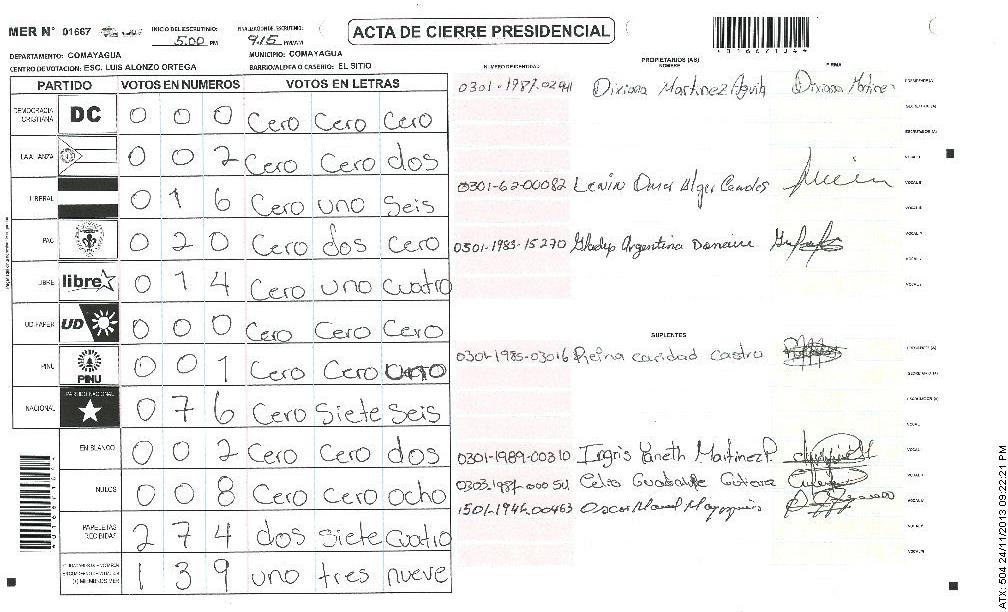 MER N° 01667
INICIO DEL ESCRUTINIO:
5:00 PM
9:15
ACTA DE CIERRE PRESIDENCIAL
DEPARTAMENTO: COMAYAGUA
MUNICIPIO: COMAYAGUA
CENTRO DE VOTACION: ESC. LUIS ALONZO ORTEGA
BARRIO/ALDEA O CASERIO: EL SITIO
PARTIDO VOTOS EN NUMEROS VOTOS EN LETRAS
DEMOCRACIA CRISTIANA DC 0 0 0 Cero Cero Cero
LA ALIANZA 0 0 2 Cero Cero dos
LIBERAL 0 1 6 Cero uno Seis
PAC 0 2 0 Cero dos Cero
LIBRE libre 0 1 4 Cero uno cuatro
UD-FAPER UD 0 0 0 Cero Cero Cero
PINU PINU 0 0 1 Cero Cero uno
NACIONAL PARTIDO NACIONAL 0 7 6 Cero Siete Seis
EN BLANCO 0 0 2 Cero Cero dos
NULOS 0 0 8 Cero Cero ocho
PAPELETAS RECIBIDAS 2 7 4 dos siete cuatro
1 3 9 uno tres nueve
NUMERO DE IDENTIDAD
PROPIETARIOS (AS)
NOMBRE
FIRMA
Dixiana Martinez Aguila
0301-62-00082 Lenin Omar Alger
0301-1983-15270 Gladys Argentina
SUPLENTES
0301-1985-03016 Reina caridad castro
0301-1989-00310 Ingris Yaneth Martinez P
Celia Guadalupe
1501-1946-00463 Oscar Manuel
ATX: 504 24/11/2013 09:22:21 PM